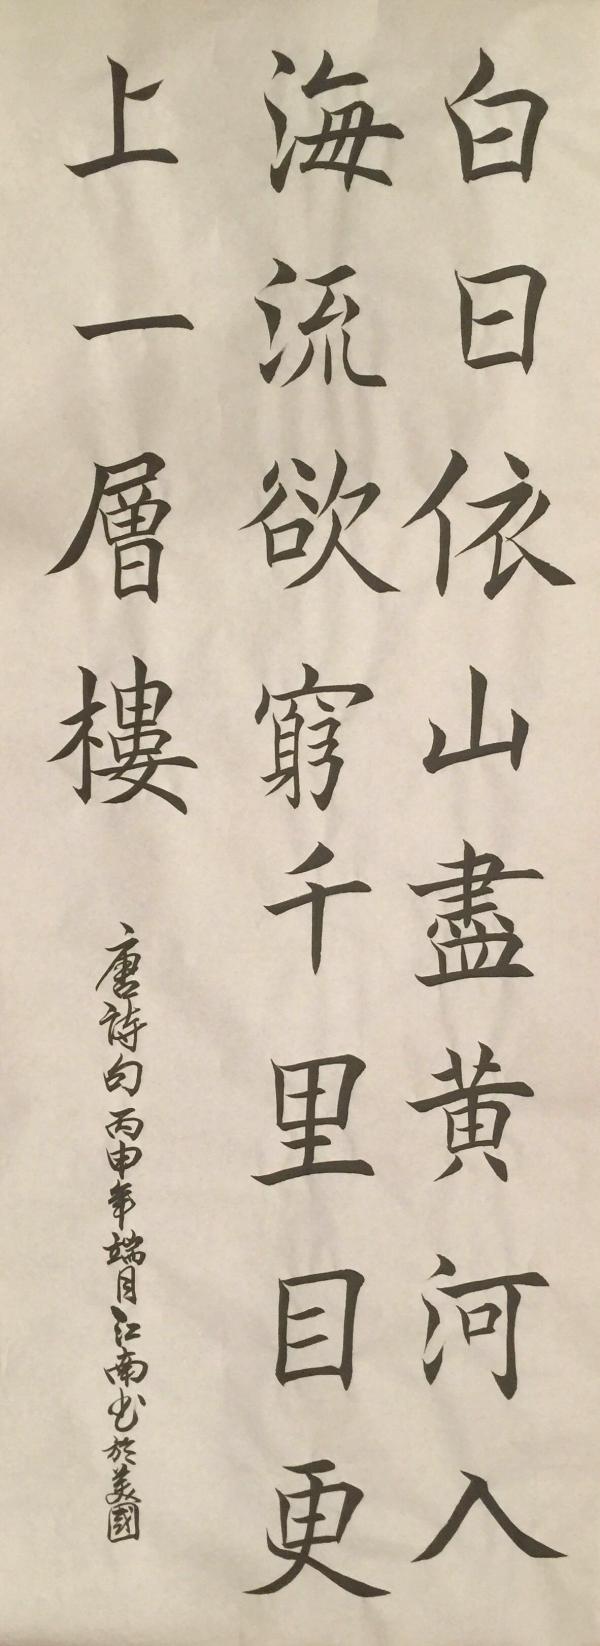 白日依山盡黄河入
海流欲窮千里目更
上一層樓
唐詩句丙申年端月江南书於美國